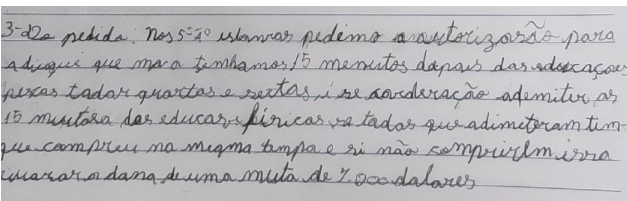 3-d2a pedida. Nos 5º-1º estamos pedimo a autorizasão para
a diuque que ma a tenhamos 15 menutos dapais das educaçoes
pisicas tadar quartas e sextas, i se coorderação ademitir, as
15 muutosa das educas físicas se tadas que adimeteram tem-
que compreu na megma tempo e si não comprirem isra
a dana de uma muta de 7.000 dalares